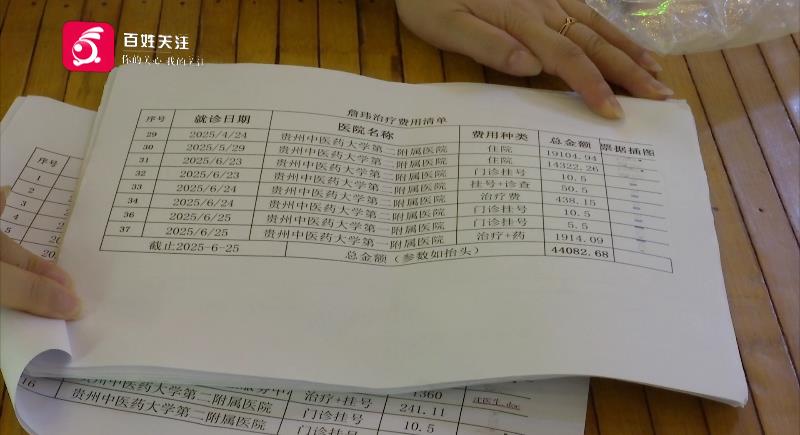 百姓关注
你的关心 我的关注
詹玮治疗费用清单
序号 就诊日期 医院名称 费用种类 总金额 票据插图
29 2025/4/24 贵州中医药大学第二附属医院 住院 19104.94
30 2025/5/29 贵州中医药大学第二附属医院 住院 14322.26
31 2025/6/23 贵州中医药大学第二附属医院 门诊挂号 10.5
32 2025/6/23 贵州中医药大学第二附属医院 挂号+诊查 50.5
33 2025/6/24 贵州中医药大学第二附属医院 治疗费 438.15
34 2025/6/24 贵州中医药大学第二附属医院 门诊挂号 10.5
36 2025/6/25 贵州中医药大学第一附属医院 门诊挂号 5.5
37 2025/6/25 贵州中医药大学第一附属医院 治疗+药 1914.09
截止2025-6-25 总金额(参数如抬头) 44082.68
序号
1
2
3
4
5
治疗+挂号 1360
16 贵州中医药大学第二附属医院 门诊挂号 241.11
贵州中医药大学第二附属医院 门诊挂号 10.5